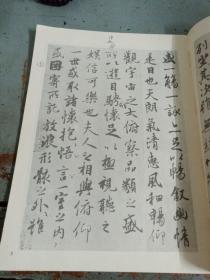 列坐其次
盛一觴一詠亦足以暢敘幽情
是日也天朗氣清惠風和暢仰
觀宇宙之大俯察品類之盛
所以遊目騁懷足以極視聽之
娛信可樂也夫人之相與俯仰
一世或取諸懷抱悟言一室之內
或因寄所託放浪形骸之外雖